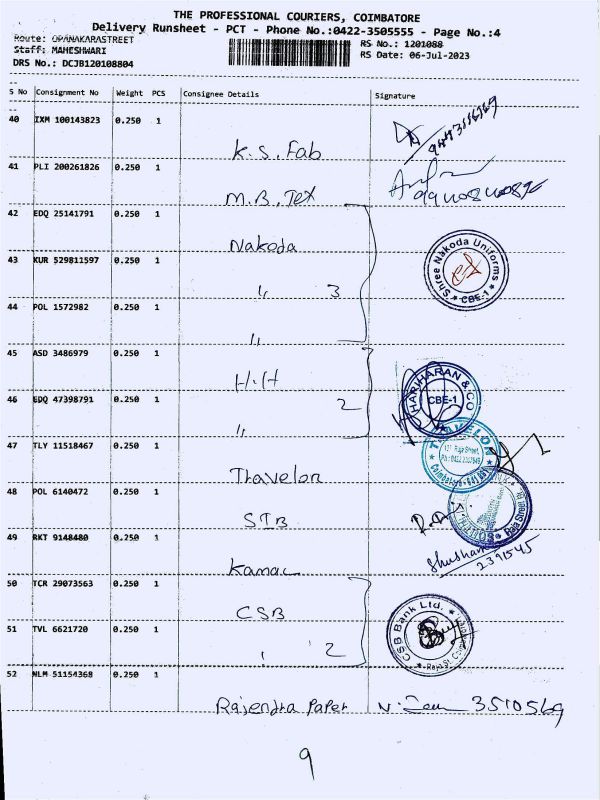 THE PROFESSIONAL COURIERS, COIMBATORE
Delivery Runsheet - PCT - Phone No.:0422-3505555 - Page No.:4
Route: OPANAKARASTREET RS No.: 1201088
Staff: MAHESHWARI RS Date: 06-Jul-2023
DRS No.: DCJB120108804
S No Consignment No Weight PCS Consignee Details Signature
40 IXM 100143823 0.250 1
K.S. Fab
41 PLI 200261826 0.250 1
M.B. Tex
42 EDQ 25141791 0.250 1
Nakoda
Shree Nakoda Uniforms
CBE-1
43 KUR 529811597 0.250 1
" 3
44 POL 1572982 0.250 1
"
45 ASD 3486979 0.250 1
H.H
HARIHARAN & CO
CBE-1
46 EDQ 47398791 0.250 1
" 2
47 TLY 11518467 0.250 1
Travelon
TRAVELON
Raja Street,
48 POL 6140472 0.250 1
SIB
Raja Street
49 RKT 9148480 0.250 1
Kamal
2391545
50 TCR 29073563 0.250 1
CSB
CSB Bank Ltd.
Raja St.
51 TVL 6621720 0.250 1
" 2
52 NLM 51154368 0.250 1
Rajendra Paper 3510569
9